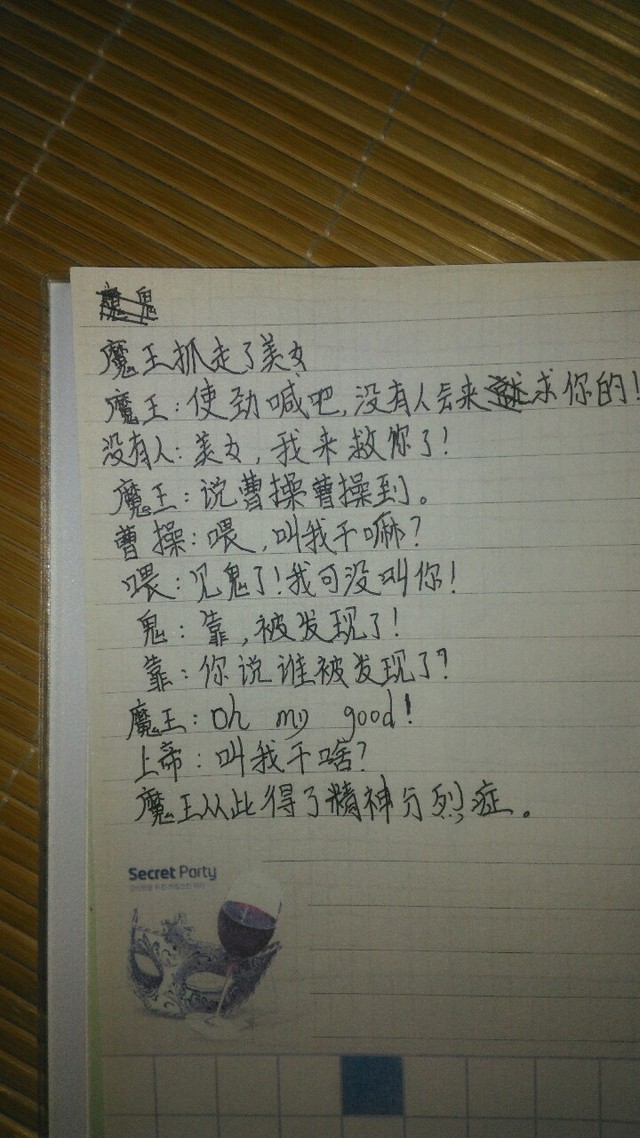 魔王抓走了美女
魔王:使劲喊吧,没有人会来求你的!
没有人:美女,我来救你了!
魔王:说曹操曹操到。
曹操:喂,叫我干嘛?
喂:见鬼了!我可没叫你!
鬼:靠,被发现了!
靠:你说谁被发现了?
魔王:Oh my good!
上帝:叫我干啥?
魔王从此得了精神分烈症。
Secret Party